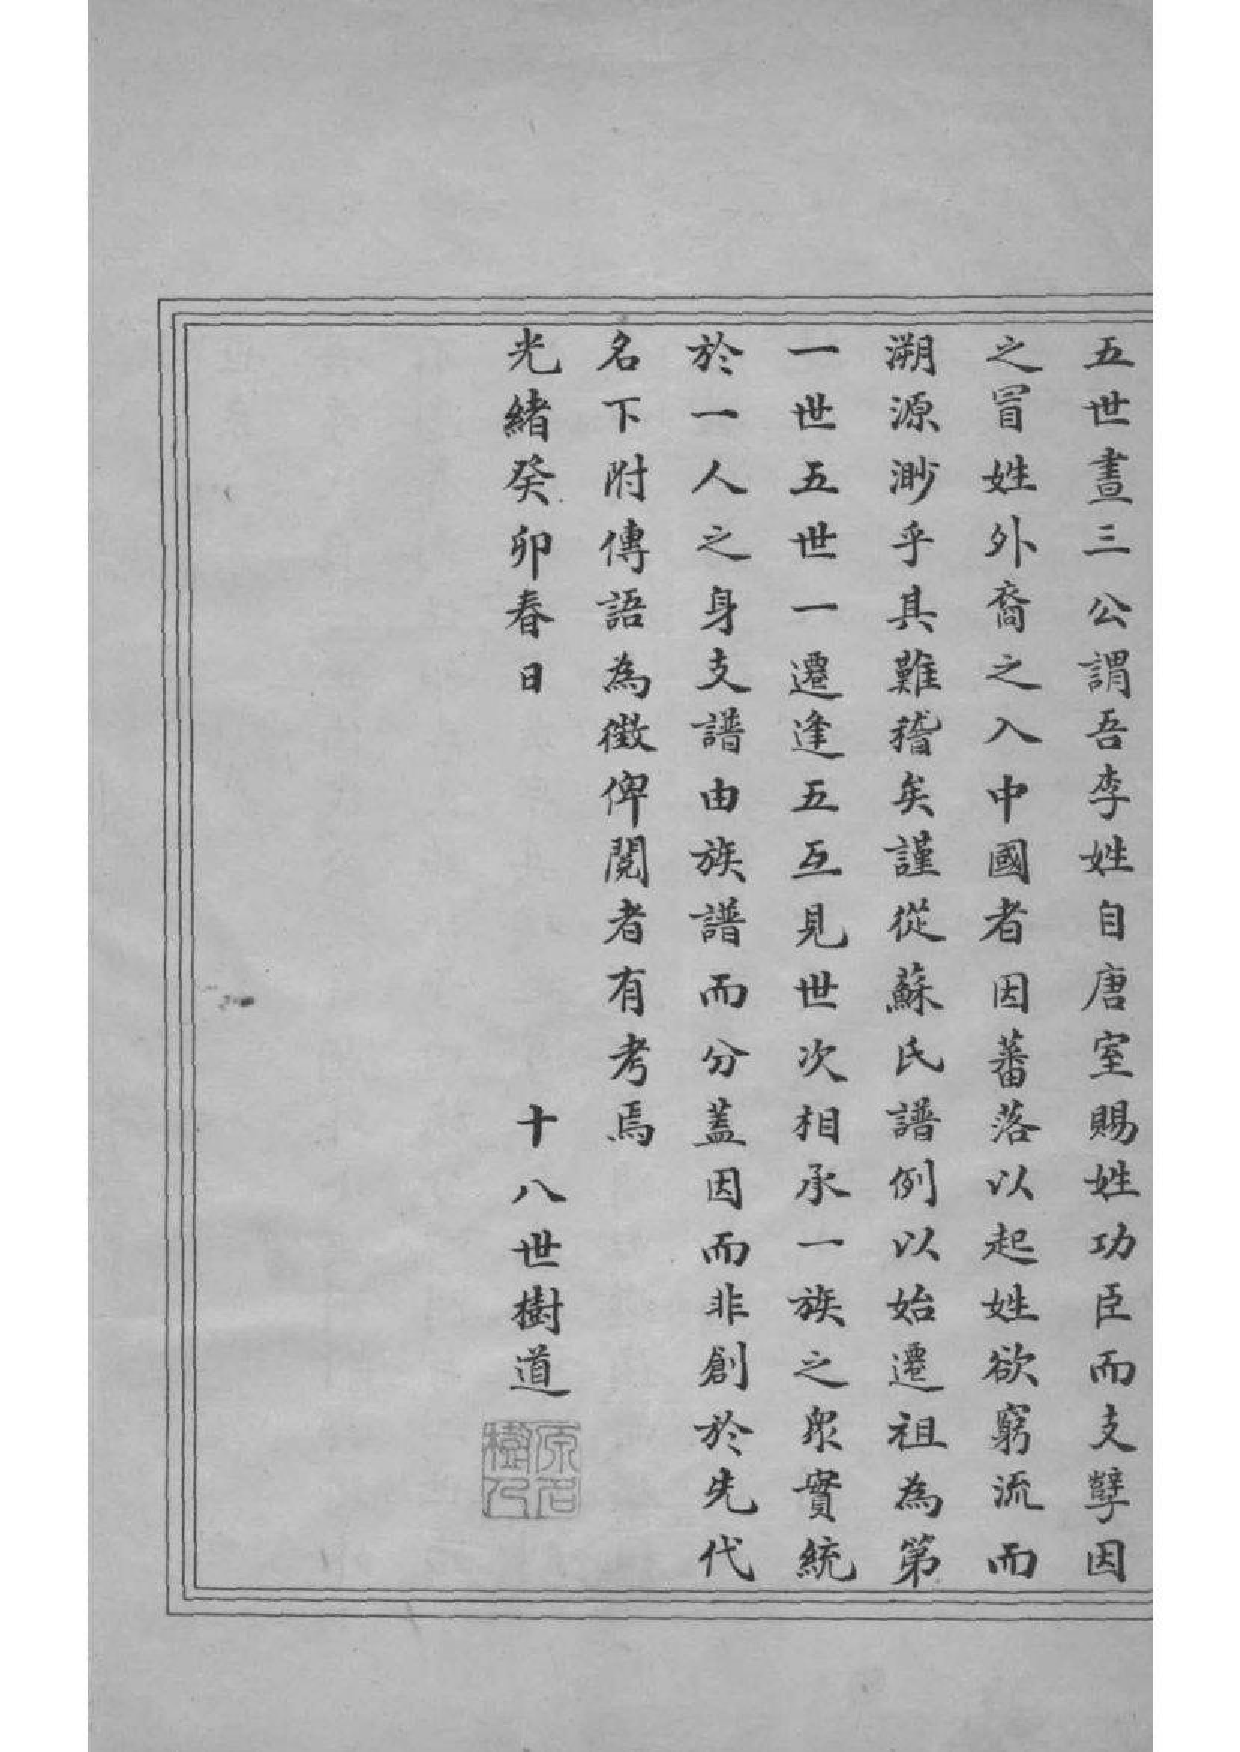 五世晝三公謂吾李姓自唐室賜姓功臣而支孽因
之冒姓外裔之入中國者因蕃落以起姓欲窮流而
溯源渺乎其難稽矣謹從蘇氏譜例以始遷祖為第
一世五世一遷逢五互見世次相承一族之眾實統
於一人之身支譜由族譜而分蓋因而非創於先代
名下附傳語為徵俾閱者有考焉
光緒癸卯春日　十八世樹道
原石
樹人